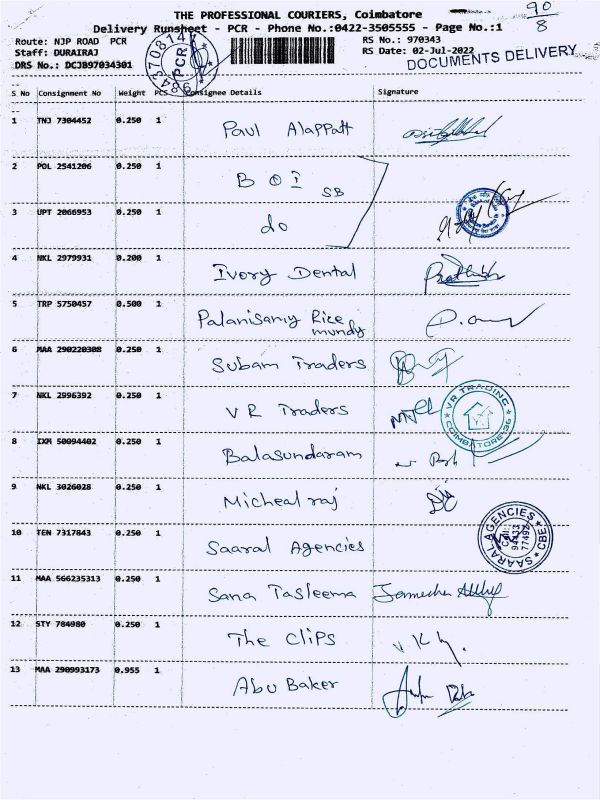 THE PROFESSIONAL COURIERS, Coimbatore
90
8
Delivery Runsheet - PCR - Phone No.:0422-3505555 - Page No.:1
Route: NJP ROAD PCR
RS No.: 970343
Staff: DURAIRAJ
RS Date: 02-Jul-2022
DRS No.: DCJB97034301
DOCUMENTS DELIVERY
PCR
S No Consignment No Weight PCS Consignee Details Signature
1 TNJ 7304452 0.250 1 Paul Alappatt
2 POL 2541206 0.250 1 BOI SB
3 UPT 2066953 0.250 1 do
4 NKL 2979931 0.200 1 Ivory Dental
5 TRP 5750457 0.500 1 Palanisamy Rice
mundy
6 MAA 290220308 0.250 1 Subam Traders
7 NKL 2996392 0.250 1 VR Traders
VR TRADING
COIMBATORE-36
8 IXM 50094402 0.250 1 Balasundaram
9 NKL 3026028 0.250 1 Micheal raj
10 TEN 7317843 0.250 1 Saaral Agencies
SAARAL AGENCIES
CBE
Cell:
94433
77492
11 MAA 566235313 0.250 1 Sana Tasleema
12 STY 784980 0.250 1 The Clips
13 MAA 290993173 0.955 1 Abu Baker